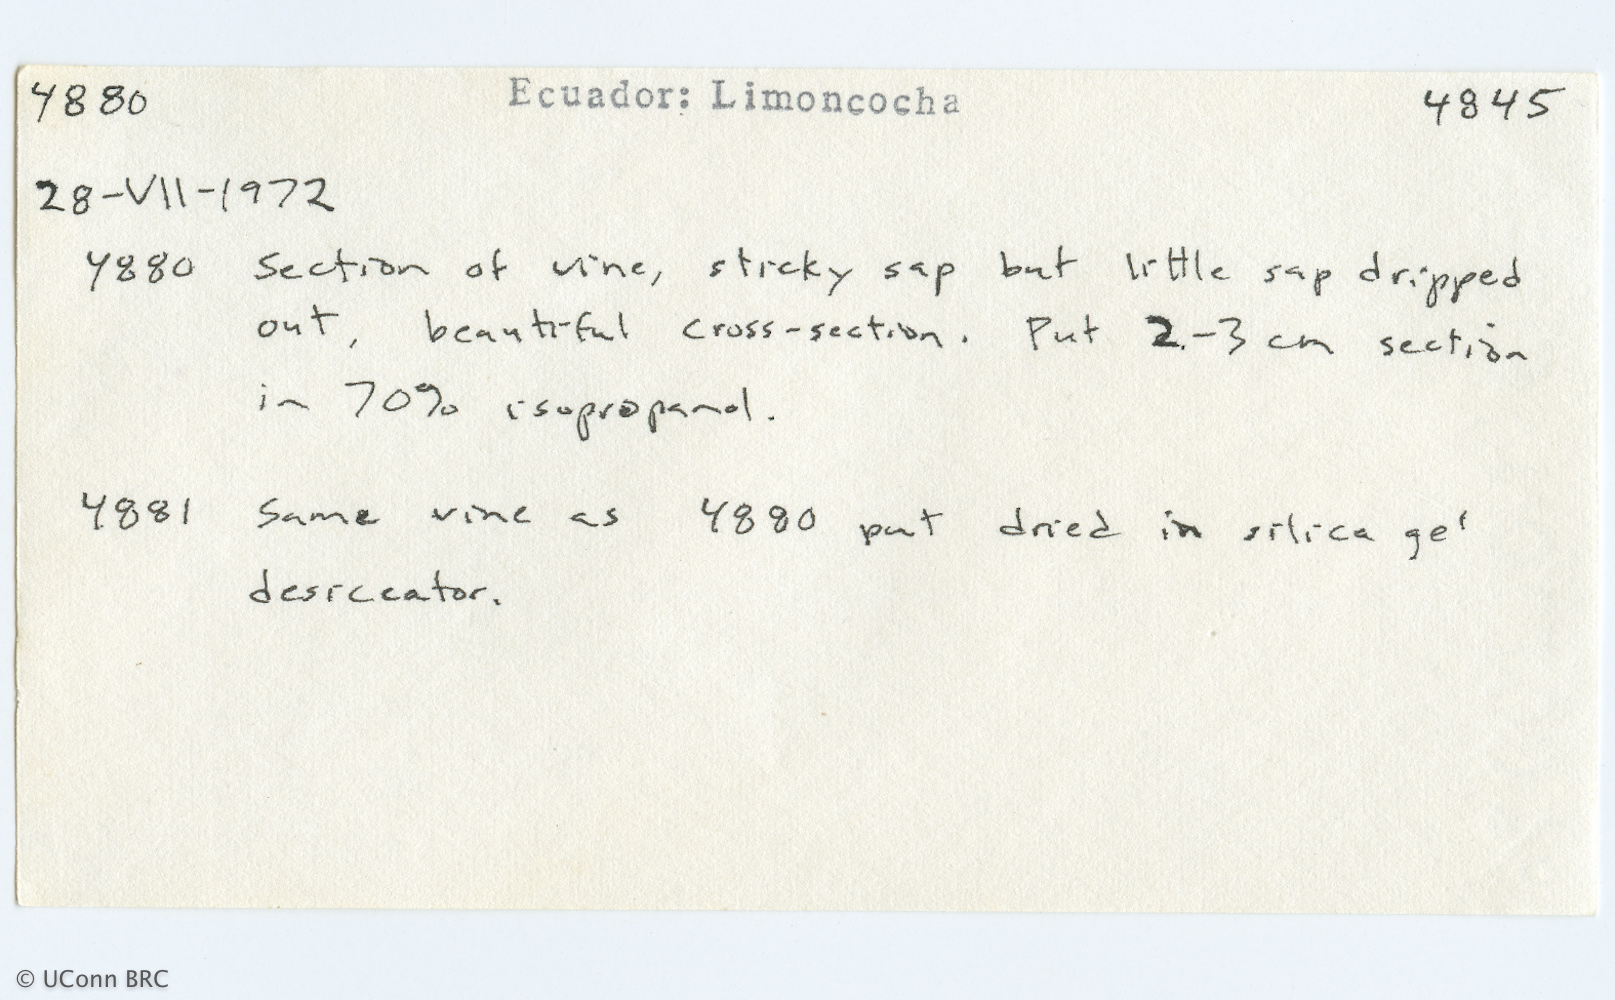 4880 Ecuador: Limoncocha 4845
28-VII-1972
4880 Section of vine, sticky sap but little sap dripped
out, beautiful cross-section. Put 2-3 cm section
in 70% isopropanol.
4881 Same vine as 4880 put dried in silica gel
desiccator.
© UConn BRC